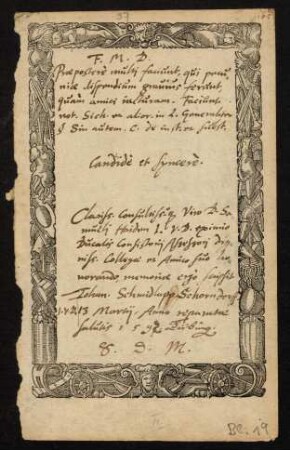 37
F. M. D.
Praeposterè multi faciunt, qui pecu,
niae dispendium gravius ferunt,
quàm amici iacturam. Faciunt
not. Sich. ex alior. in L. Generaliter
§ Sin autem. C. de instit. et subst.
Candidè et syncerè.
Clariss. Consultissq. Viro D. Sa,
mueli Haiden I. V. D. eximio
Ducalis Consistorii Assessori dig,
niss. Collegae et Amico suo ho,
norando, memoriae ergò scripsit
Iohan. Schmidlapp Schorndorff.
I. V. D. 13 Martij. Anno reparatae
salutis 1592 Tübing.
S. D. M.
Bl. 19